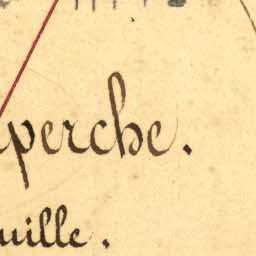 perche.
uille.